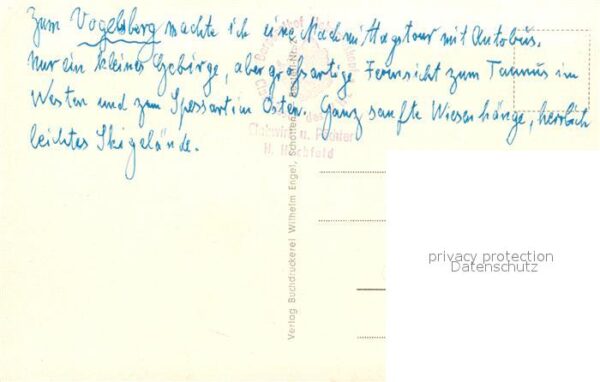 Zum Vogelsberg machte ich eine Nachmittagstour mit Autobus.
Nur ein kleines Gebirge, aber großartige Fernsicht zum Taunus im
Westen und zum Spessart im Osten. Ganz sanfte Wiesenhänge, herrlich
leichtes Skigelände.
Clubwirt u. Pächter
Verlag Buchdruckerei Wilhelm Engel, Schotten
privacy protection
Datenschutz